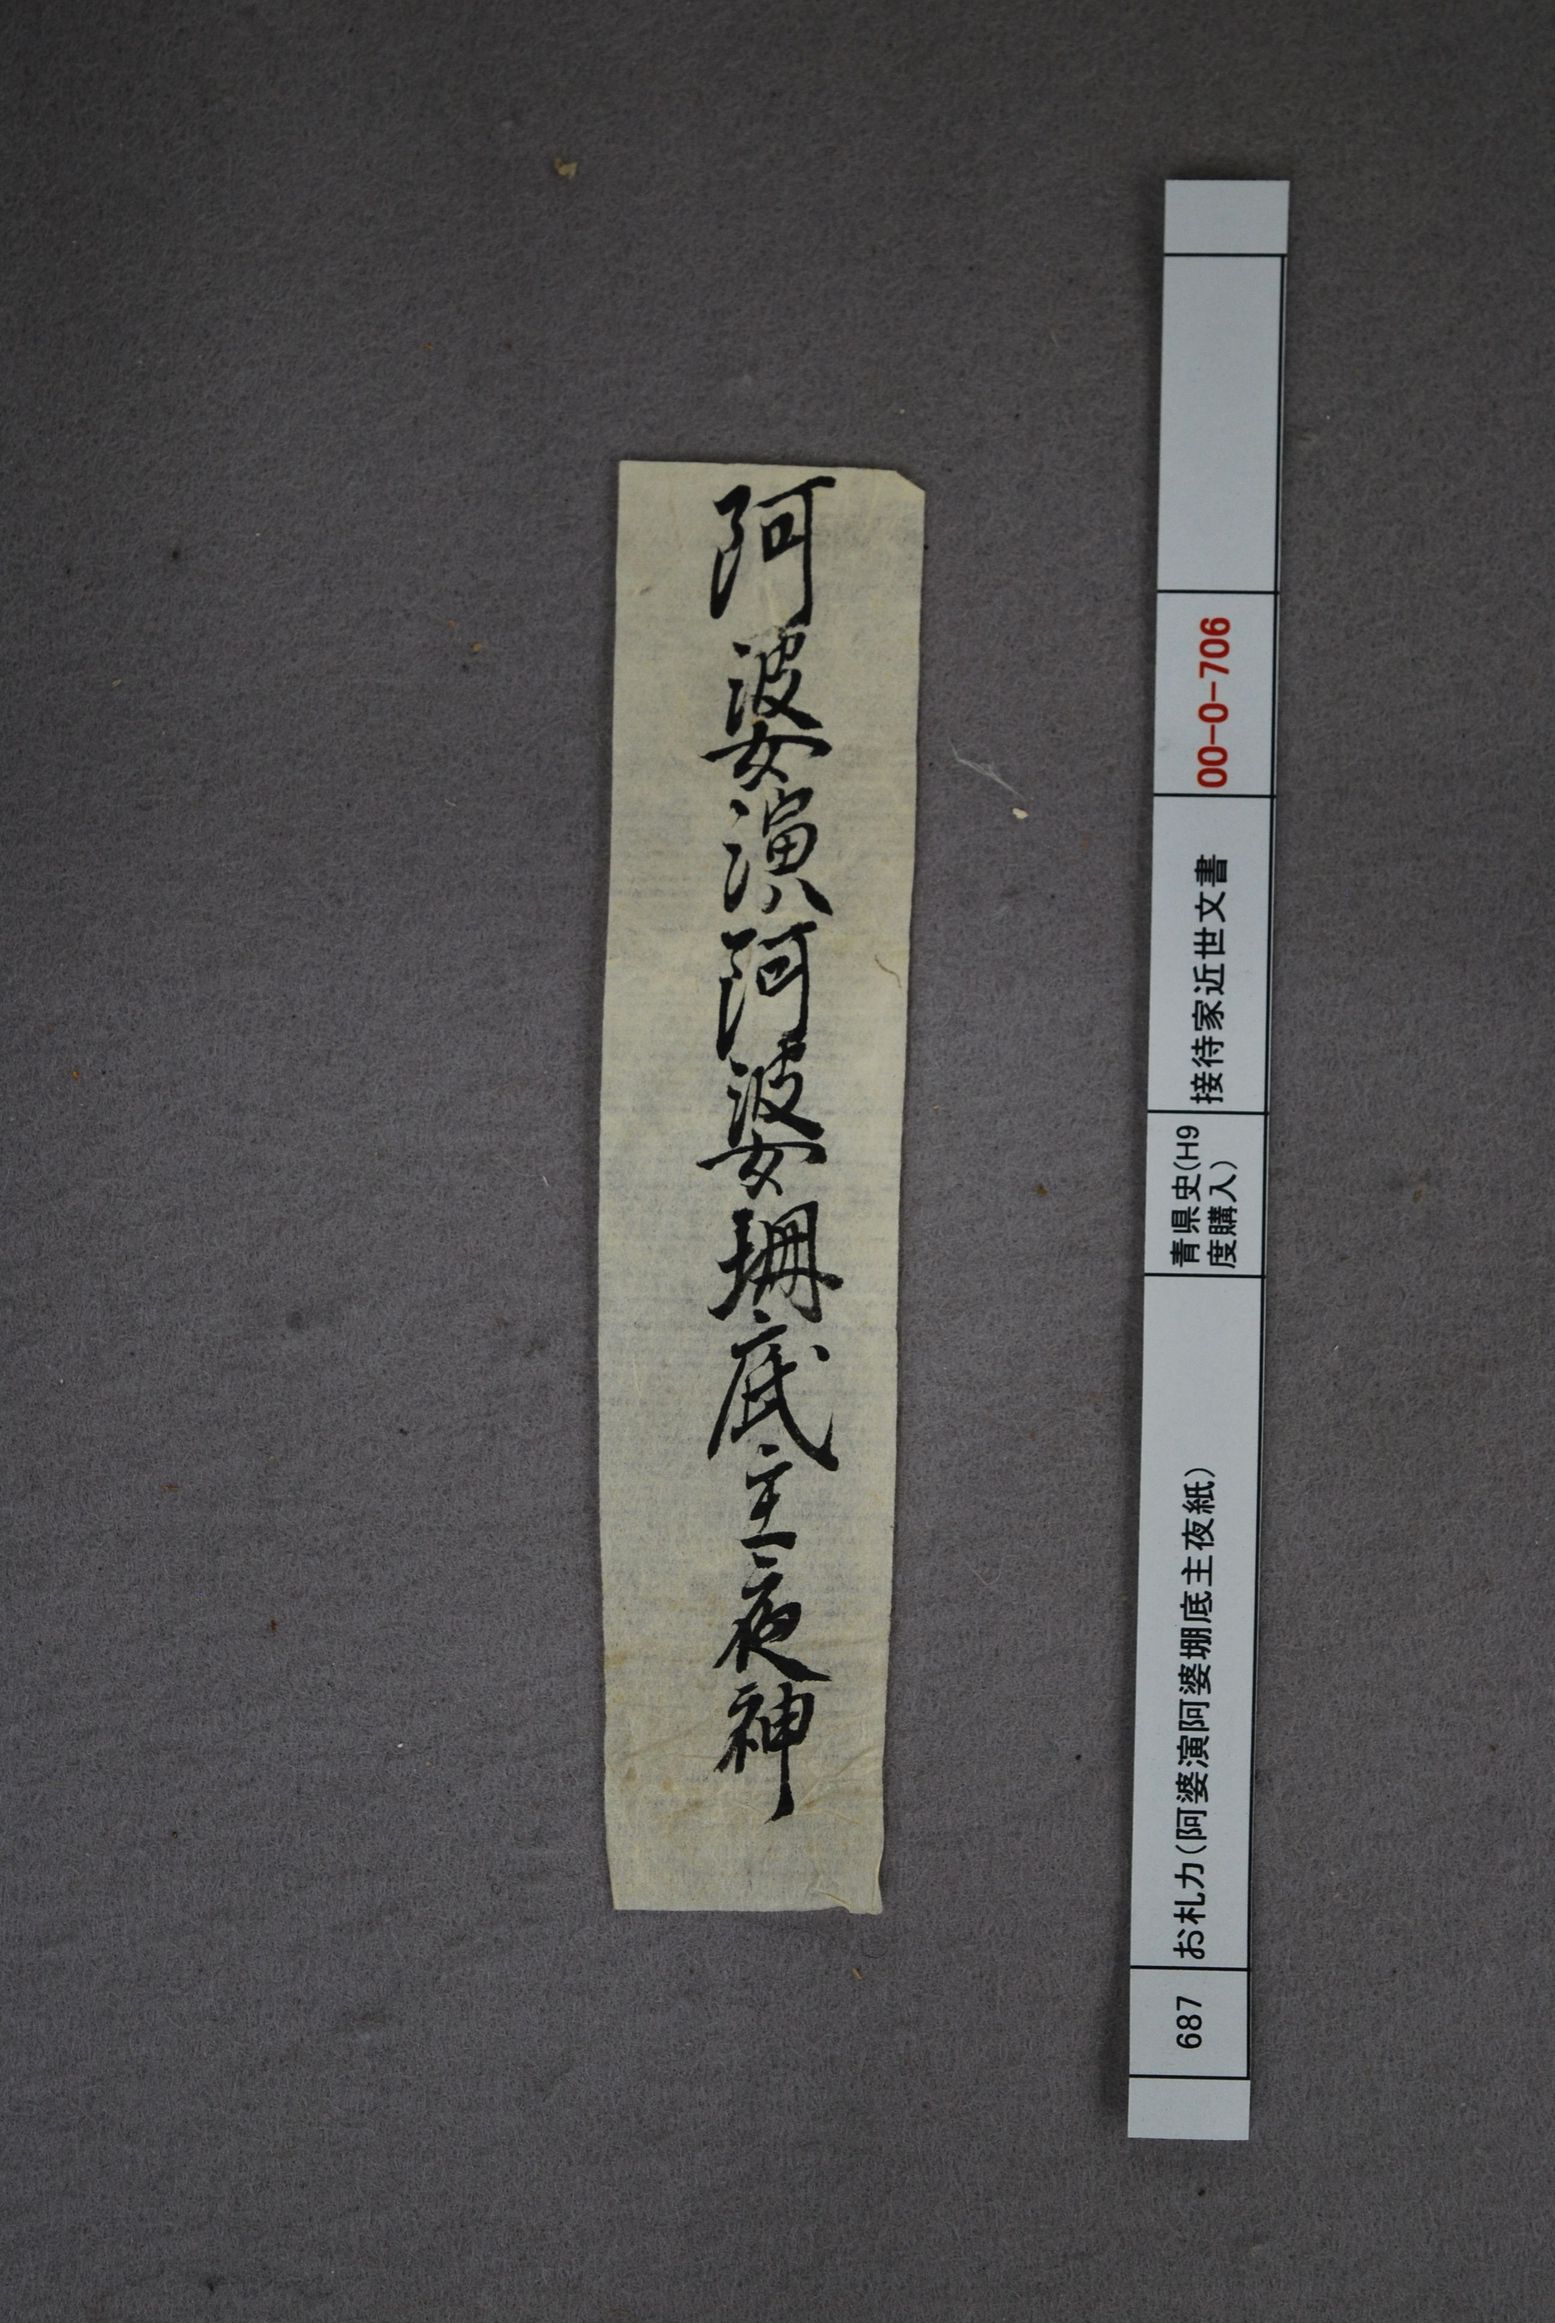 阿婆演阿婆珊底主夜神
687
お札カ(阿婆演阿婆堋底主夜紙)
青県史(H9
度購入)
接待家近世文書
00-0-706